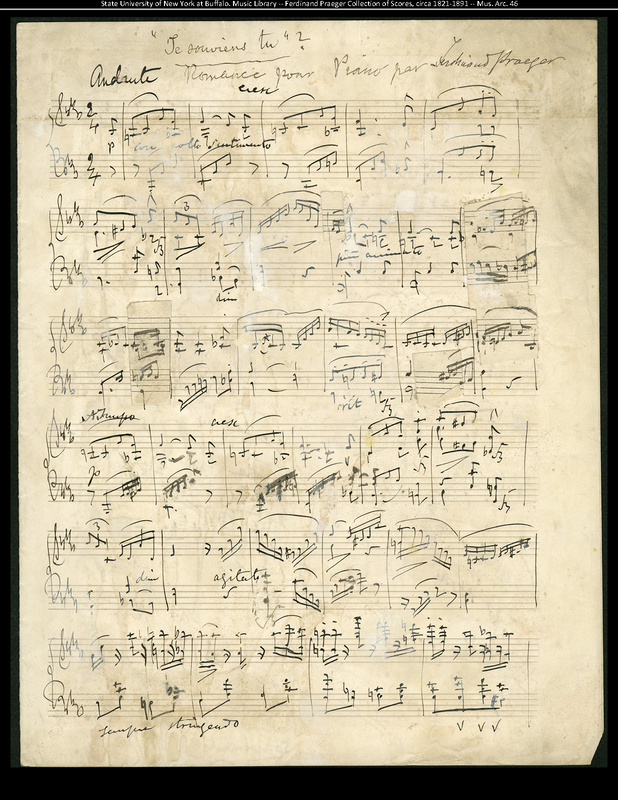 State University of New York at Buffalo. Music Library -- Ferdinand Praeger Collection of Scores, circa 1821-1891 -- Mus. Arc. 46
"Te souviens tu"?
Andante Romance pour Piano par Ferdinand Praeger
cresc
2 4 p
con molto sentimento
2 4
3
più animato
dim
rit
A tempo cresc
p
3
dim agitato
sempre stringendo